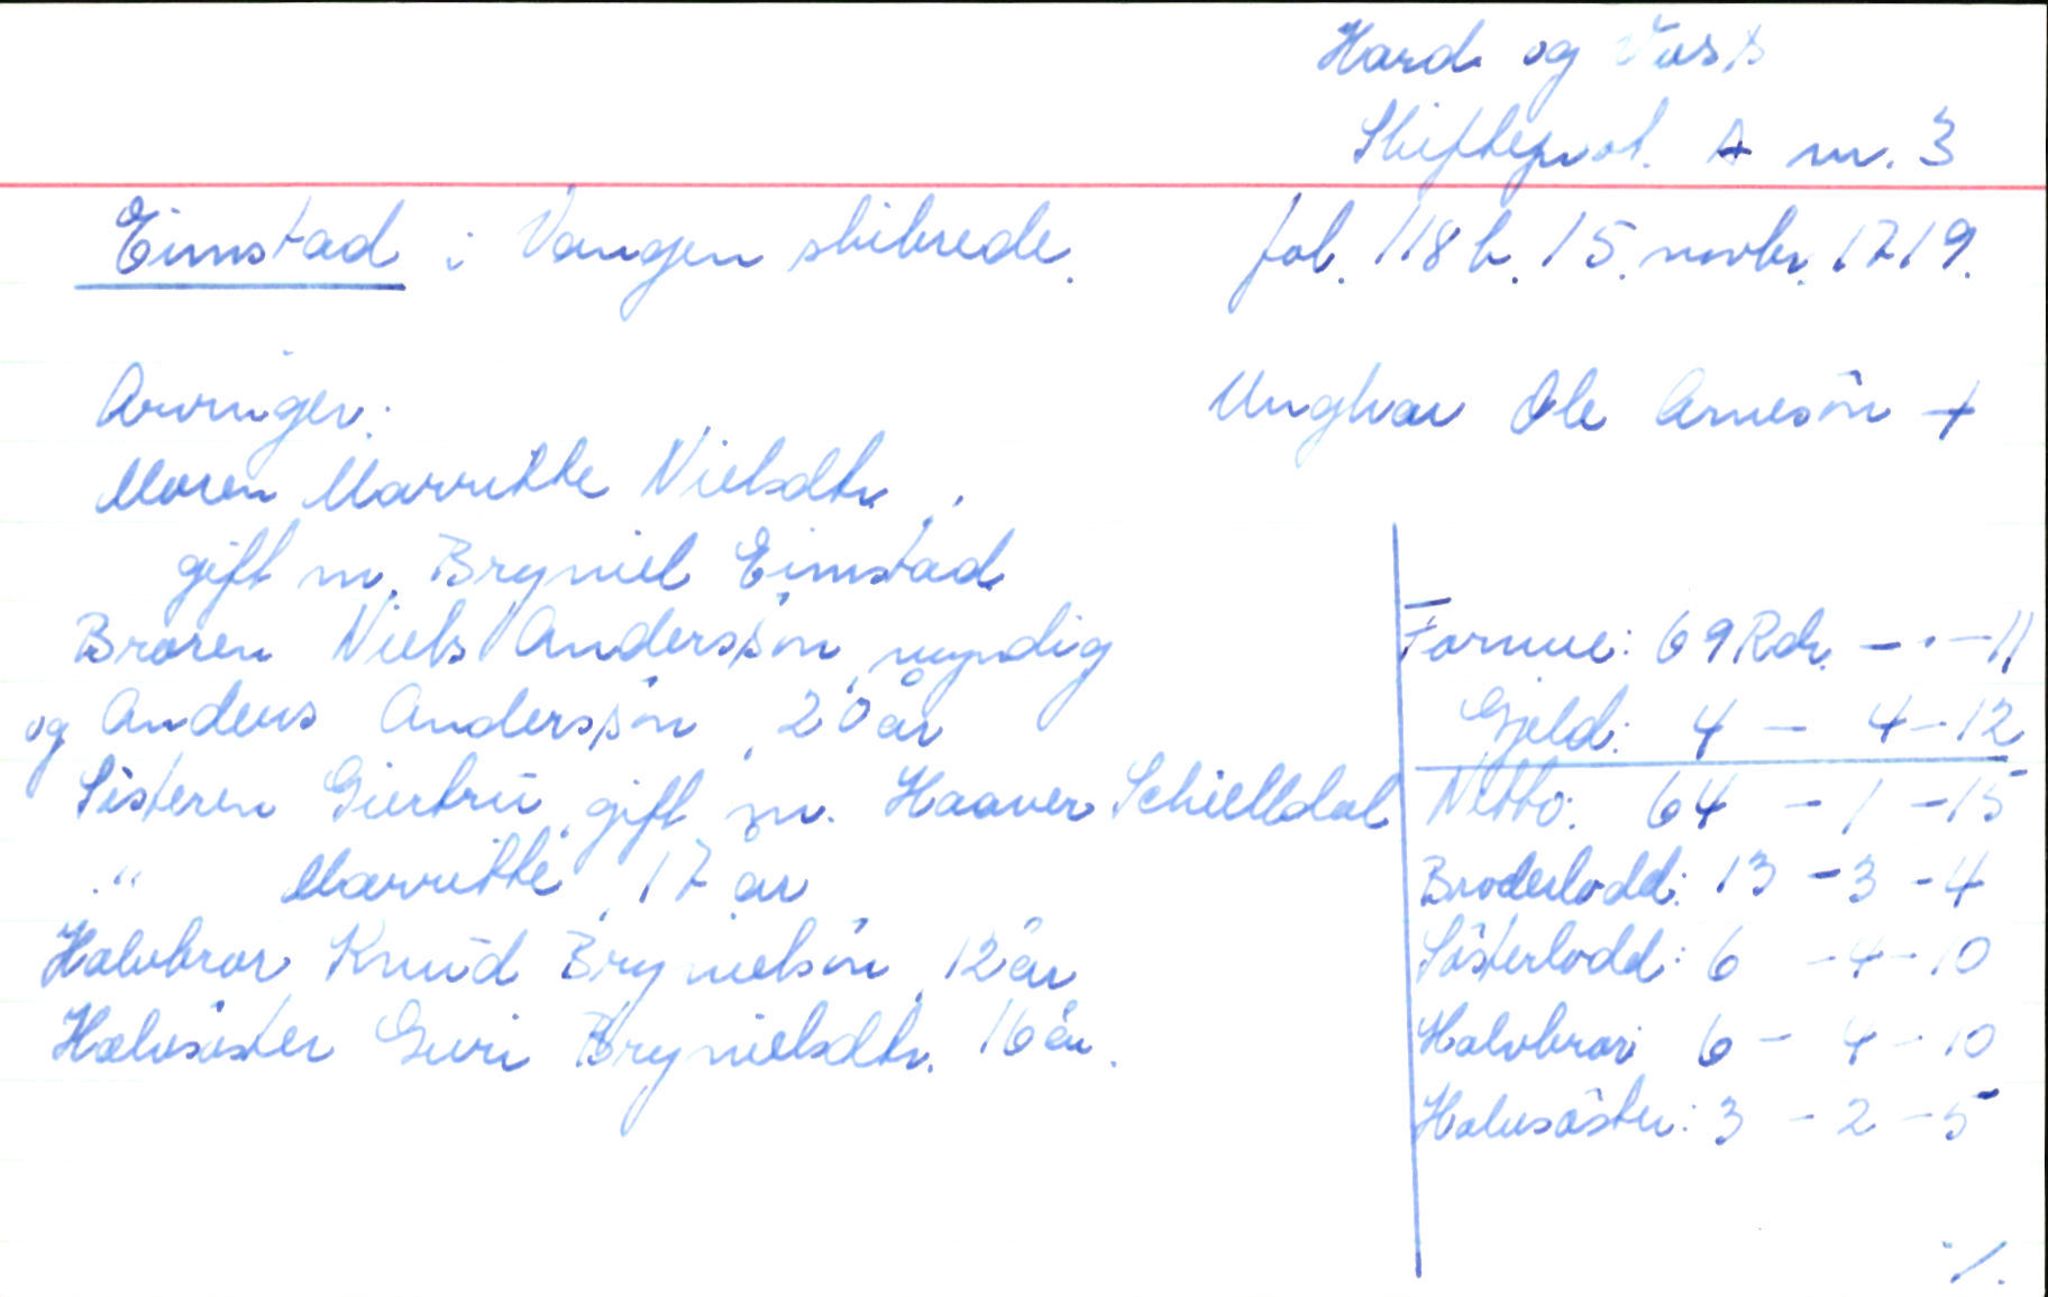 Hard. og Voss
Skifteprot. A nr. 3
Eimstad i Vangen skibrede. fol. 118 b. 15. novbr. 1719.
Arvinger: Ungkar Ole Arnesön +
Moren Marritte Nielsdtr.,
gift m. Bryniel Eimstad
Broren Niels Andersön, myndig
og Anders Andersön, 20 år
Sösteren Giertrü, gift m. Haaver Schielldal
" Marritte, 17 år
Halvbror Knüd Brynielsön, 12 år
Halvsöster Guri Brynielsdtr. 16 år.
Formue: 69 Rdr. - · - 11
Gjeld: 4 - 4 - 12
Netto: 64 - 1 - 15
Broderlodd: 13 - 3 - 4
Sösterlodd: 6 - 4 - 10
Halvbror: 6 - 4 - 10
Halvsöster: 3 - 2 - 5
./.